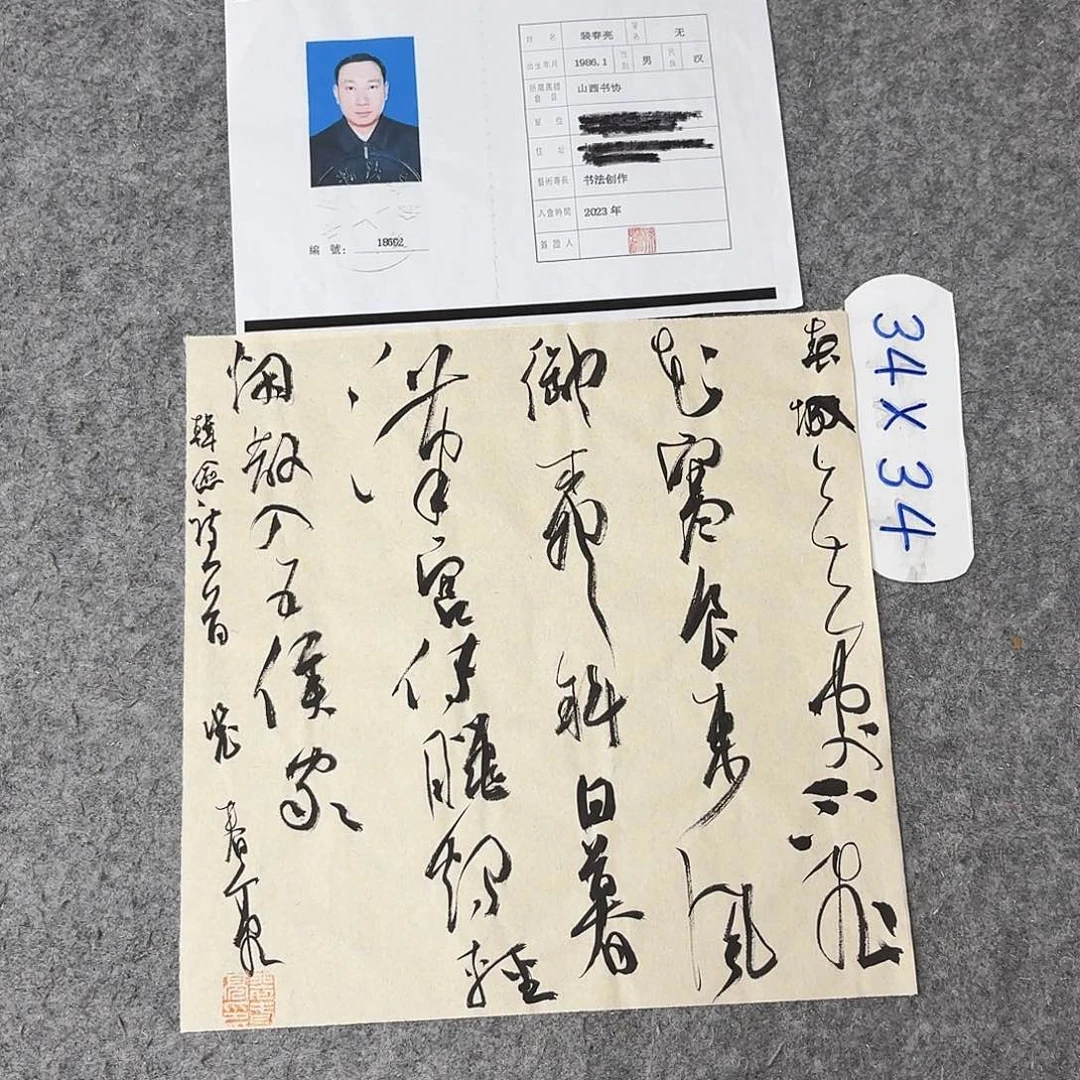 姓名 裴春亮 筆名 无
出生年月 1986.1 性别 男 民族 汉
所屬團體會員 山西书协
單位
住址
藝術專長 书法创作
入會時間 2023年
簽證人
編號:
34X34
春城無處不飛
花寒食東風
御柳斜日暮
漢宮傳臘燭輕
烟散入五侯家
韓翃詩一首 春亮